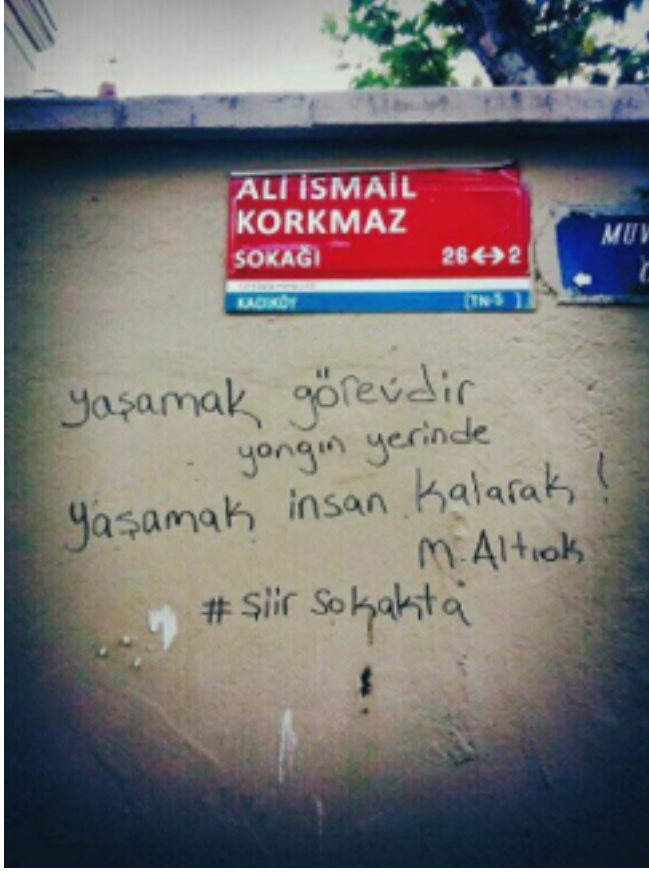 ALİ İSMAİL
KORKMAZ
SOKAĞI 26↔2
KADIKÖY (TN-5 )
MUV
yaşamak görevdir
yangın yerinde
yaşamak insan kalarak !
M. Altıok
# şiir sokakta